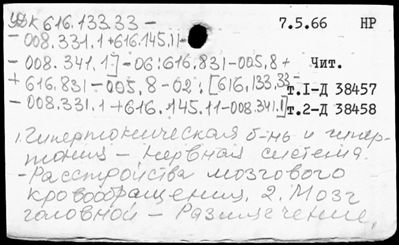 УДК 616.133.33-
7.5.66 НР
-008.331.1+616.145.11-
-008.341.1]-06:616.831-005.8+
Чит.
+616.831-005.8-02:[616.133.33-
т.1-Д 38457
-008.331.1+616.145.11-008.341.1]
т.2-Д 38458
1. Гипертоническая б-нь и гипер-
тония - Нервная система.
- Расстройства мозгового
кровообращения. 2. Мозг
головной - Размягчение.